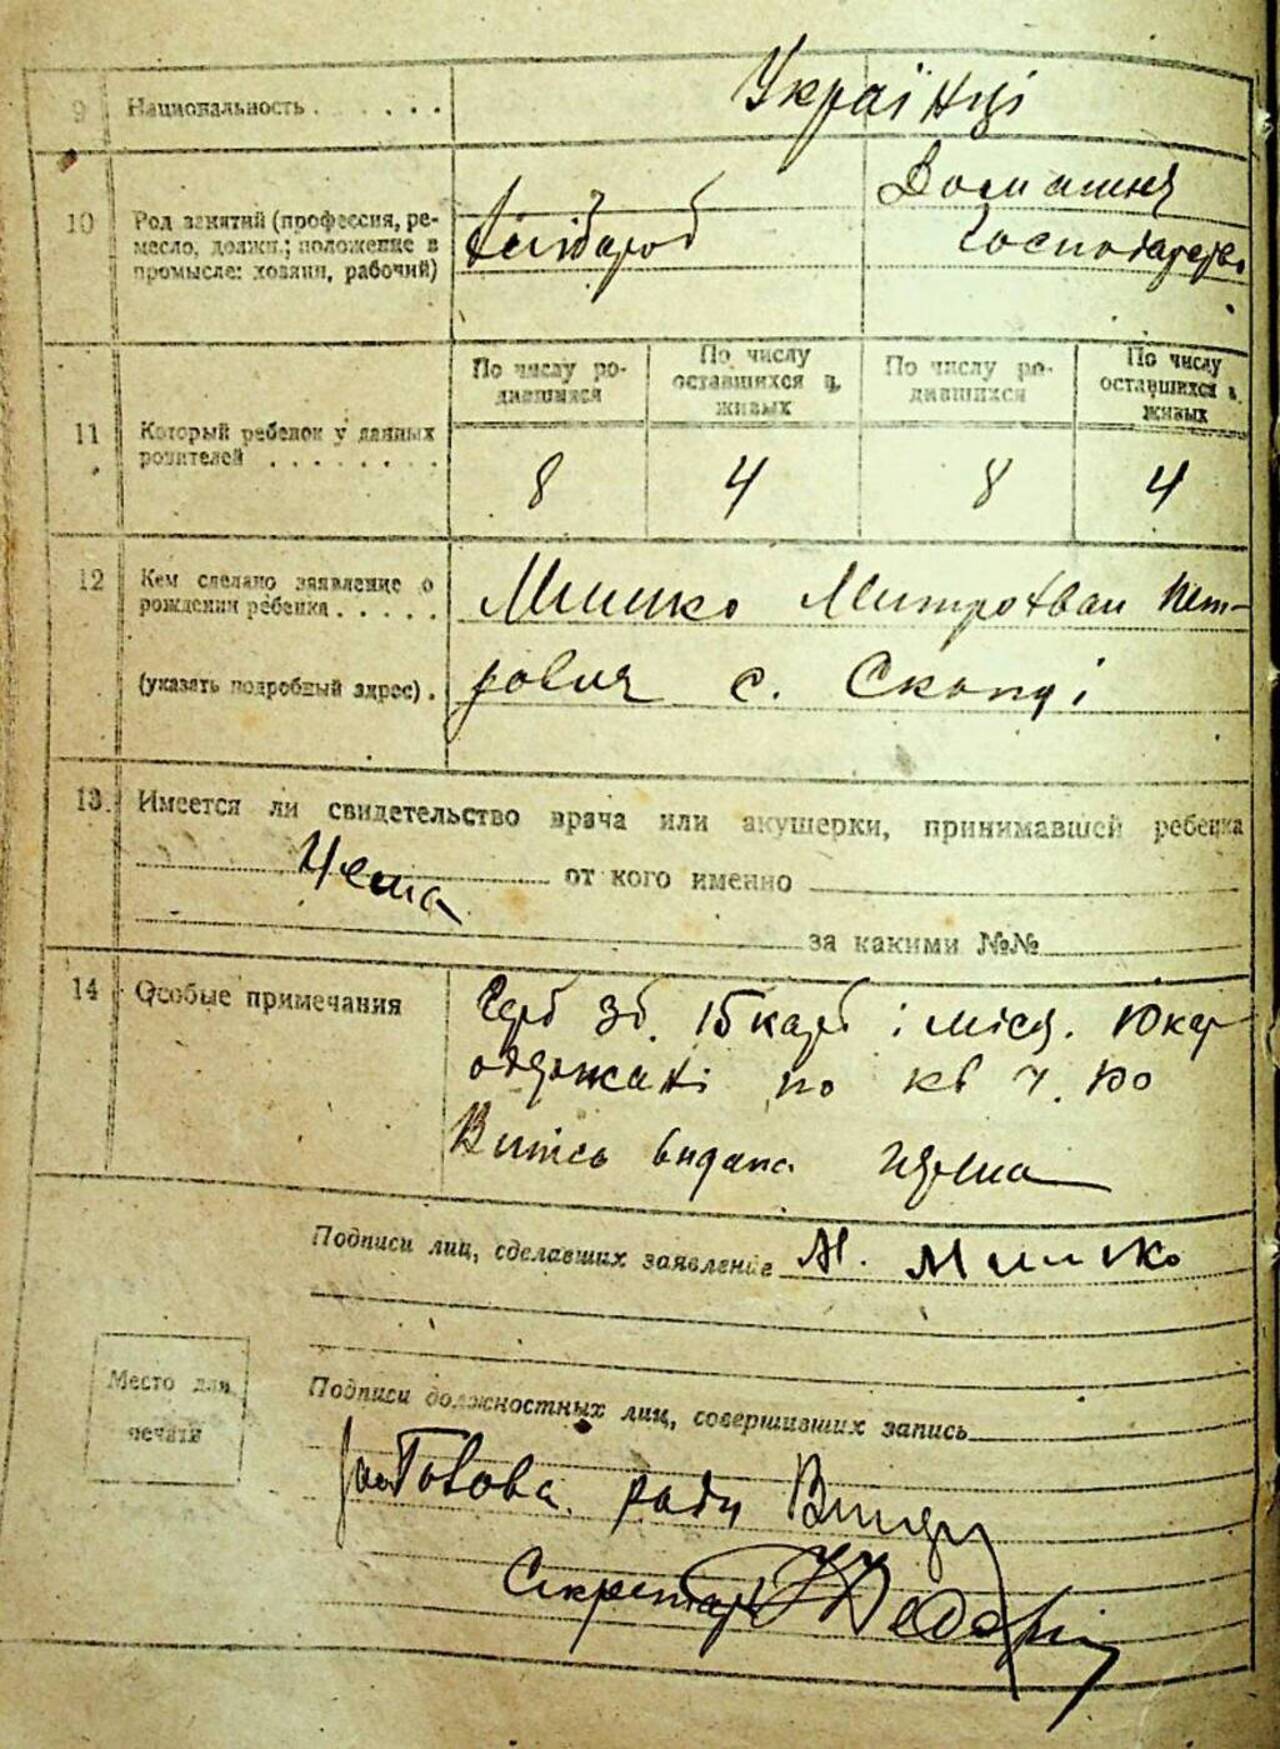 9 Национальность . . . . . . Українці
10 Род занятий (профессия, ре-
месло, должн.; положение в
промысле: хозяин, рабочий)
Хлібороб
Домашнє
Господарство
11 Который ребенок у данных
родителей . . . . . . . .
По числу ро-
дившихся
По числу
оставшихся в
живых
По числу ро-
дившихся
По числу
оставшихся в
живых
8 4 8 4
12 Кем сделано заявление о
рождении ребенка . . . . .
(указать подробный адрес) .
Мишко Митрофван Пет-
рович с. Скопці
13. Имеется ли свидетельство врача или акушерки, принимавшей ребенка
Нема от кого именно
за какими №№
14 Особые примечания
Герб зб. 15 карб і місц. 10 кар
одержані по кв ч.
Витяг видана
Подписи лиц, сделавших заявление М. Мишко
Место для
печати
Подписи должностных лиц, совершивших запись
Голова ради
Секретарь